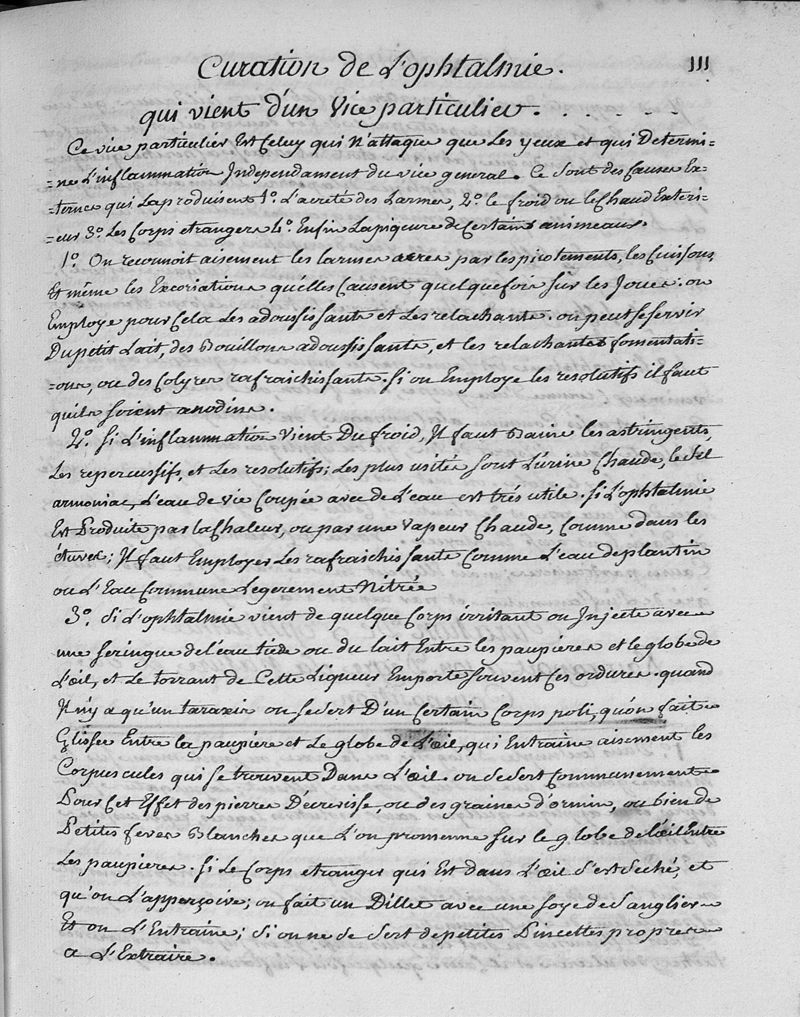 111
Curation de L'ophtalmie.
qui vient d'un Vice particulier . . . . . .
Ce vice particulier Est Celuy qui N'attaque que Les yeux et qui Determi=
=ne L'inflammation Independament du vice general. Ce sont des Causes Ex=
=ternes qui La produisent 1º. L'acreté des Larmes, 2º. le froid ou le Chaud Exteri=
=eur 3º. Les Corps etrangers 4º. Enfin La piqueure de Certains animeaux.
1º. On reconnoit aisement les larmes acres par les picotements, les Cuissons
Et même les Excoriations qu'elles Causent quelque fois sur les Joues. on
Employe pour Cela Les adousissants et Les relachants. on peut se servir
Du petit Lait, des Bouillons adoussissants, et les relachantes fomentati=
=ons, ou des Colyres rafraichissants. si on Employe les resolutifs il faut
quils soient anodins.
2º. si L'inflammation Vient Du froid, Il faut les astringents,
Les repercussifs, et Les resolutifs; Les plus usités sont L'urine Chaude, le Sel
armoniac, L'eau de vie Coupée avec de L'eau est trés utile. Si L'ophtalmie
Est Produite par la Chaleur, ou par une vapeur Chaude, Comme dans les
étuves; Il faut Employer Les rafraichissants Comme L'eau de plantin
ou L'Eau Commune Legerement Nitrée
3º. Si L'ophtalmie vient de quelque Corps irritant on Injecte avec
une seringue de l'eau tiede ou du lait Entre les paupieres et le globe de
L'œil, et Le torrant de Cette Liqueur Emporte souvent Ces ordures. quand
Il n'y a qu'un taraxis on se sert D'un Certain Corps poli, qu'on fait
Glisser Entre la paupiere et Le globe de L'œil, qui Entraine aisement les
Corpuscules qui se trouvent Dans L'œil. on se sert Communement
Pour Cet Effet des pierres D'ecrevisse, ou des graines d'ormin, ou bien de
Petites feves Blanches que L'on promenne sur le globe de l'œil Entre
Les paupieres. si Le Corps etranger qui Est dans L'œil S'est Seché, et
qu'on L'apperçoive; on fait un Dillet avec une soye de Sanglier
Et on L'Entraine; Si on ne se Sert de petites Pincettes propres
a L'Extraire.